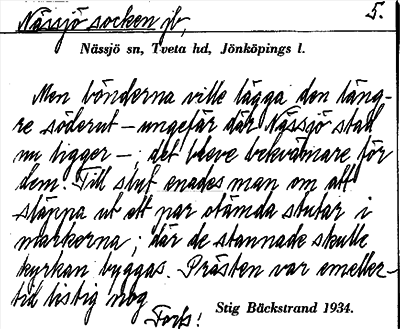 Nässjö socken jb,
5.
Nässjö sn, Tveta hd, Jönköpings l.
Men bönderna ville lägga den läng-
re söderut – ungefär där Nässjö stad
nu ligger –; det bleve bekvämare för
dem. Till slut enades man om att
släppa ut ett par otämda stutar i
markerna; där de stannade skulle
kyrkan byggas. Prästen var emeller-
tid listig nog
Forts!
Stig Bäckstrand 1934.